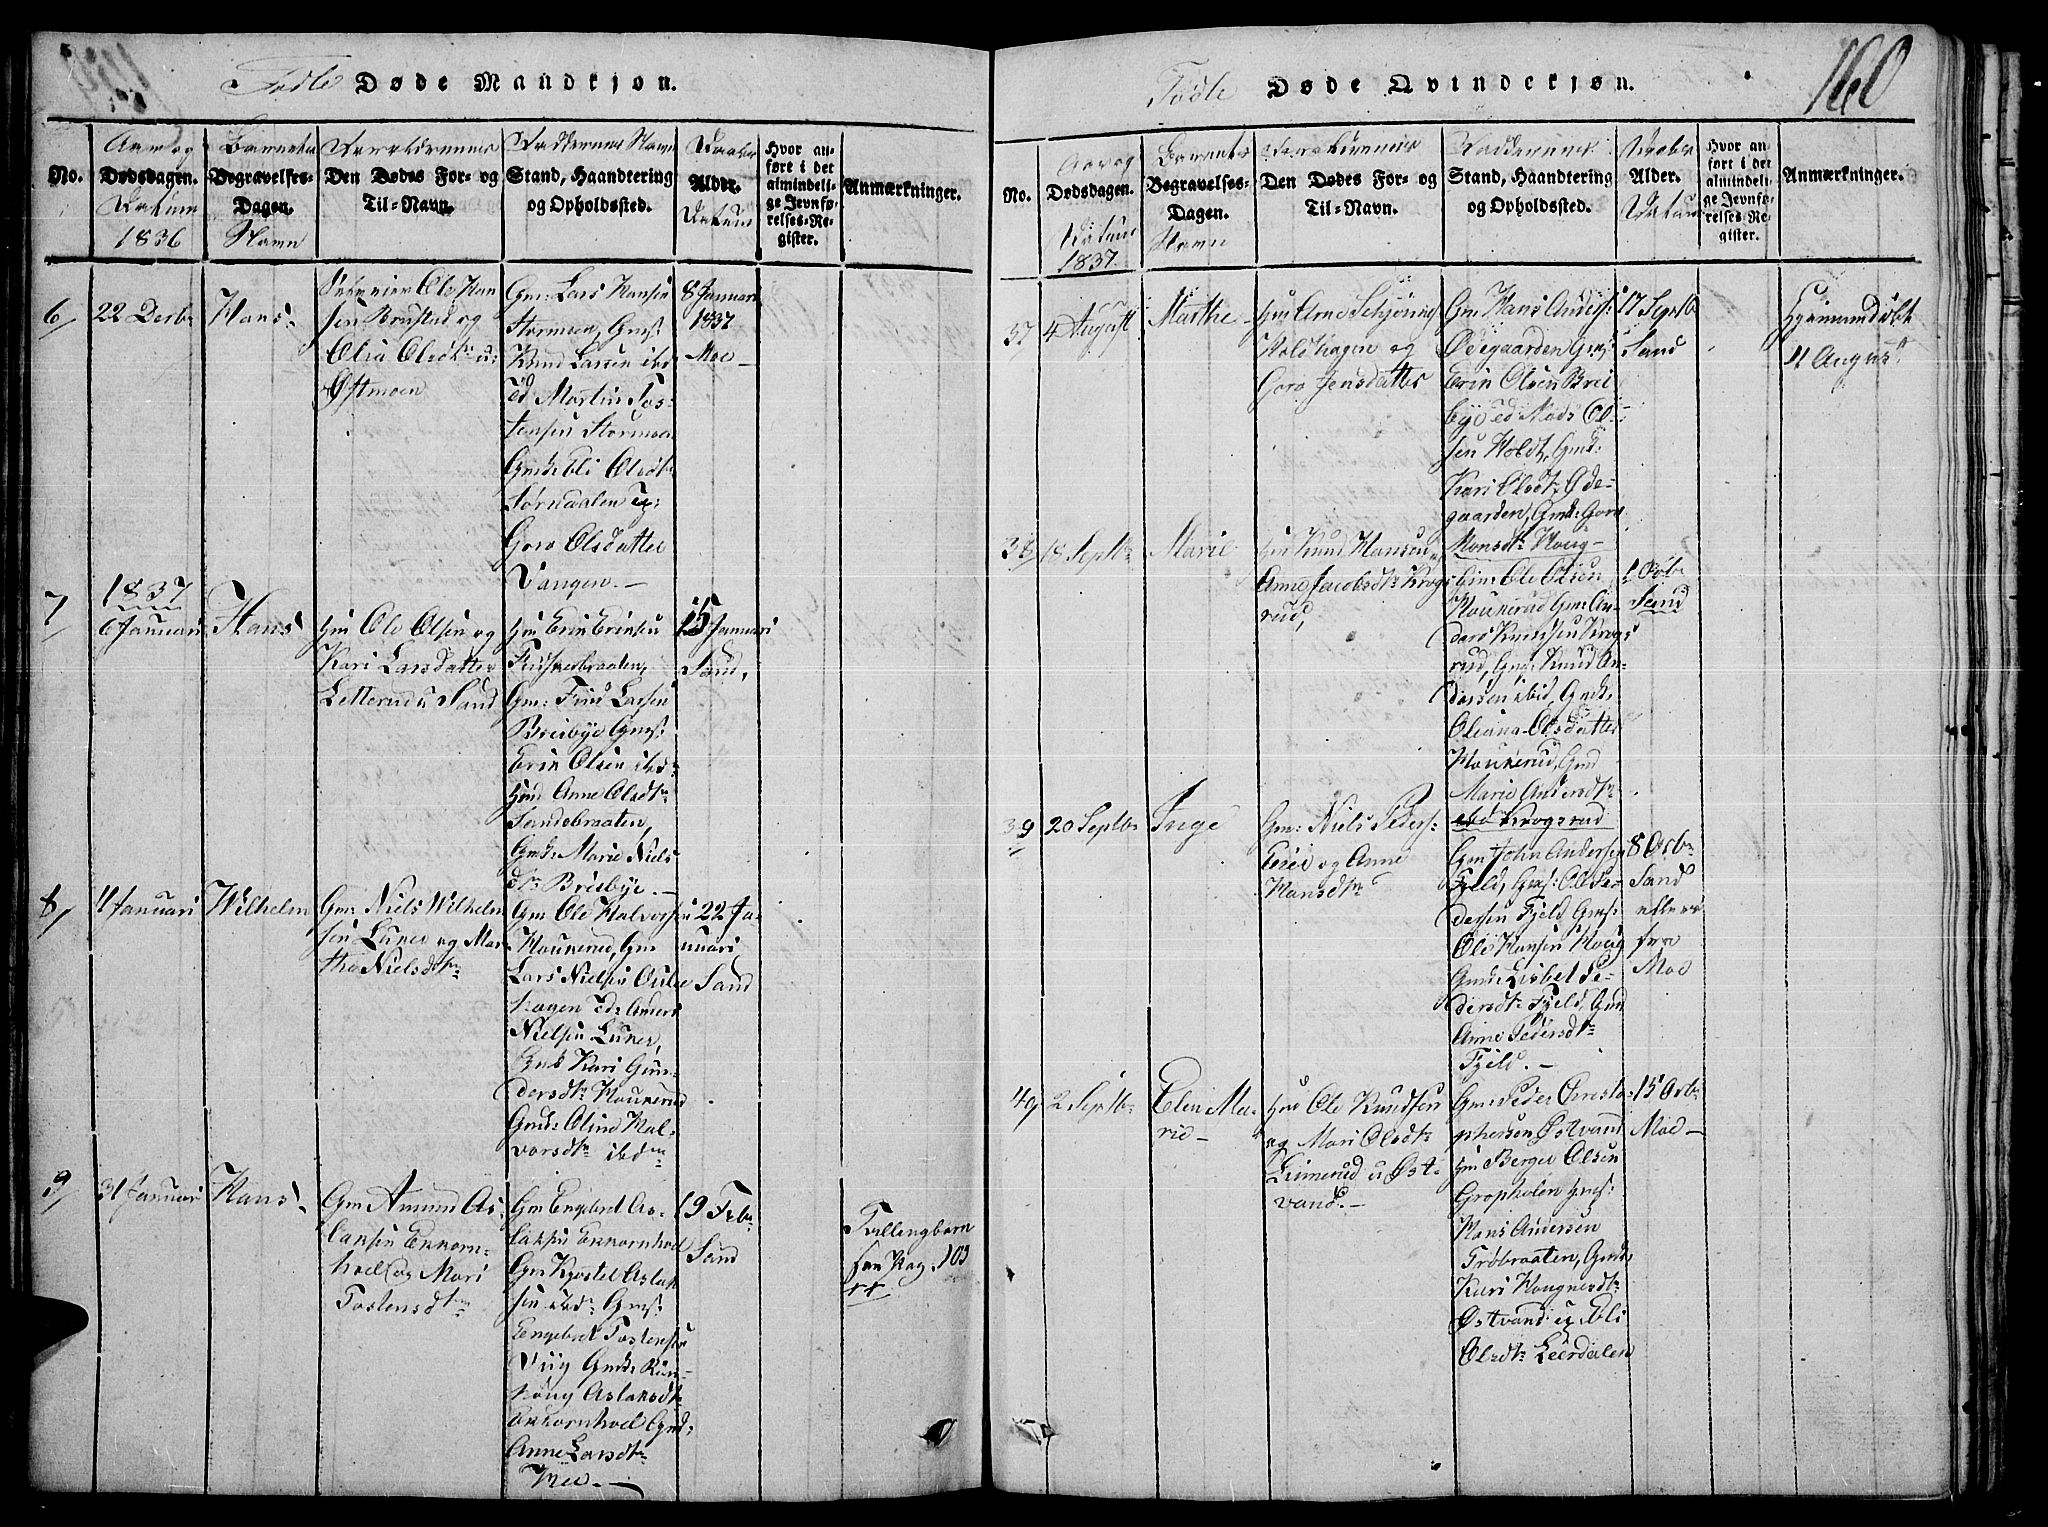 Fødte Døde Mandkjøn.
No.
Aar og
Dødsdagen.
Datum
1836
Barnets
Begravelses-
Dagen
Navn
Forældrenes
Den Dødes For- og
Til-Navn.
Faddernes Navn
Stand, Haandtering
og Opholdssted.
Daabs
Alder.
Datum
Hvor an-
føre i det
almindeli-
ge Jevnfø-
relses-Re-
gister.
Anmærkninger.
6
22 Decbr
Hans
Ole Han
sen Brustad og
Olia Olsdtr u:
Østmoen
Gm: Lars Hansen
Stormoen, Gms:
Knud Larsen ibd
Ed Martin Tos-
tensen Stormoen
Gmk Eli Olsdtr
Tørudalen Eg:
Goro Olsdatter
Vangen. —
8 Januari
1837
Moe —
7
1837
6 Januari
Hans
Hm Ole Olsen og
Kari Larsdatter
Letterud u Sand
Hm Erik Eriksen
Gm: Find Larsen
Breibye Gms:
Erik Olsen ibd
Hmk Anne Olsdtr
Sandebraaten,
Gmk: Marie Niels
dtr Breibye. —
15 Januari
Sand,
8
11 Januari
Wilhelm
Gm: Niels Wilhelm
sen Luner og Mar
the Nielsdtr
Gm Ole Halvorsen
Houkerud, Gm
Lars Nielsen
hagen Ed: Anders
Nielsen Luner,
Gmk Kari Gun-
dersdtr Houkerud
Gmk: Oline Hal-
vorsdtr ibdm
22 Ja-
nuari
Sand
9
31 Januari
Hans
Gm Amund As-
laksen Ekorn-
hoel og Mari
Tostensdtr
Gm Engebret As-
laksen Ekornhoel
Gm Kjøstel Aslak
sen ibd: Gms:
Engebret Tostensen
Viig Gmk: Ron-
noug Aslaksdtr
Ekornhoel Gmk:
Anne Larsdtr
19 Febr
Sand
Tvillingbarn
see Pag. 103
Fødte Døde Qvindekjøn.
160
No.
Aar og
Dødsdagen.
Datum
1837.
Barnets
Begravelses-
Dagen.
Navn
Forældrenes
Den Dødes For- og
Til-Navn.
Faddernes
Stand, Haandtering
og Opholdssted.
Daabs
Alder.
Datum
Hvor an-
ført i det
almindeli-
ge Jevnfø-
relses-Re-
gister.
Anmærkninger.
37
4 August
Marthe
Hm Arne
Holdhagen og
Goro Jensdatter
Gm Hans Anders:
Ødegaarden Gms:
Erik Olsen Brei
bye Ed Mads Ol-
sen Holdt, Gmk:
Kari Olsdtr Øde-
gaarden, Gmk: Goro
Monsdtr Houg —
17 Septb
Sand
Hjemmedøbt
11 August
38
18 Septbr
Marie
Hm Knud Hansen og
Anne Jacobsdtr Krogs
rud,
Gm: Ole Olsen
Houkerud Gm: An-
ders Knudsen Krogs
rud, Gms: Knud An-
dersen ibid, Gmk:
Oleana Olsdatter
Houkerud, Gmk
Marie Andersdtr
Krogsrud
1 Octbr
Sand
39
20 Septbr
Inge
Gm: Niels Peders:
og Anne
Hansdtr
Gm John Andersen
Fjeld, Gms: Ole Pe-
dersen Fjeld, Gms:
Ole Hansen Houg
Gmk: Lisbet Pe-
dersdtr Fjeld, Gmk
Anne Pedersdtr
Fjeld. —
8 Octbr
Sand
Moe
40
2 Septbr
Elen Ma-
rie —
Hm Ole Knudsen
og Mari Olsdtr
Limerud u Øst-
vand. —
Gm: Peder Christo-
phersen Østvand
Hm Berger Olsen
Gropholen Hms:
Hans Andersen
Trøbraaten, Gmk:
Kari Haagensdtr
Østvand og Eli
Olsdtr Leerdalen
15 Octbr
Moe —